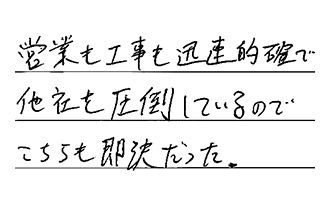 営業も工事も迅速的確で
他社を圧倒しているので
こちらも即決だった。